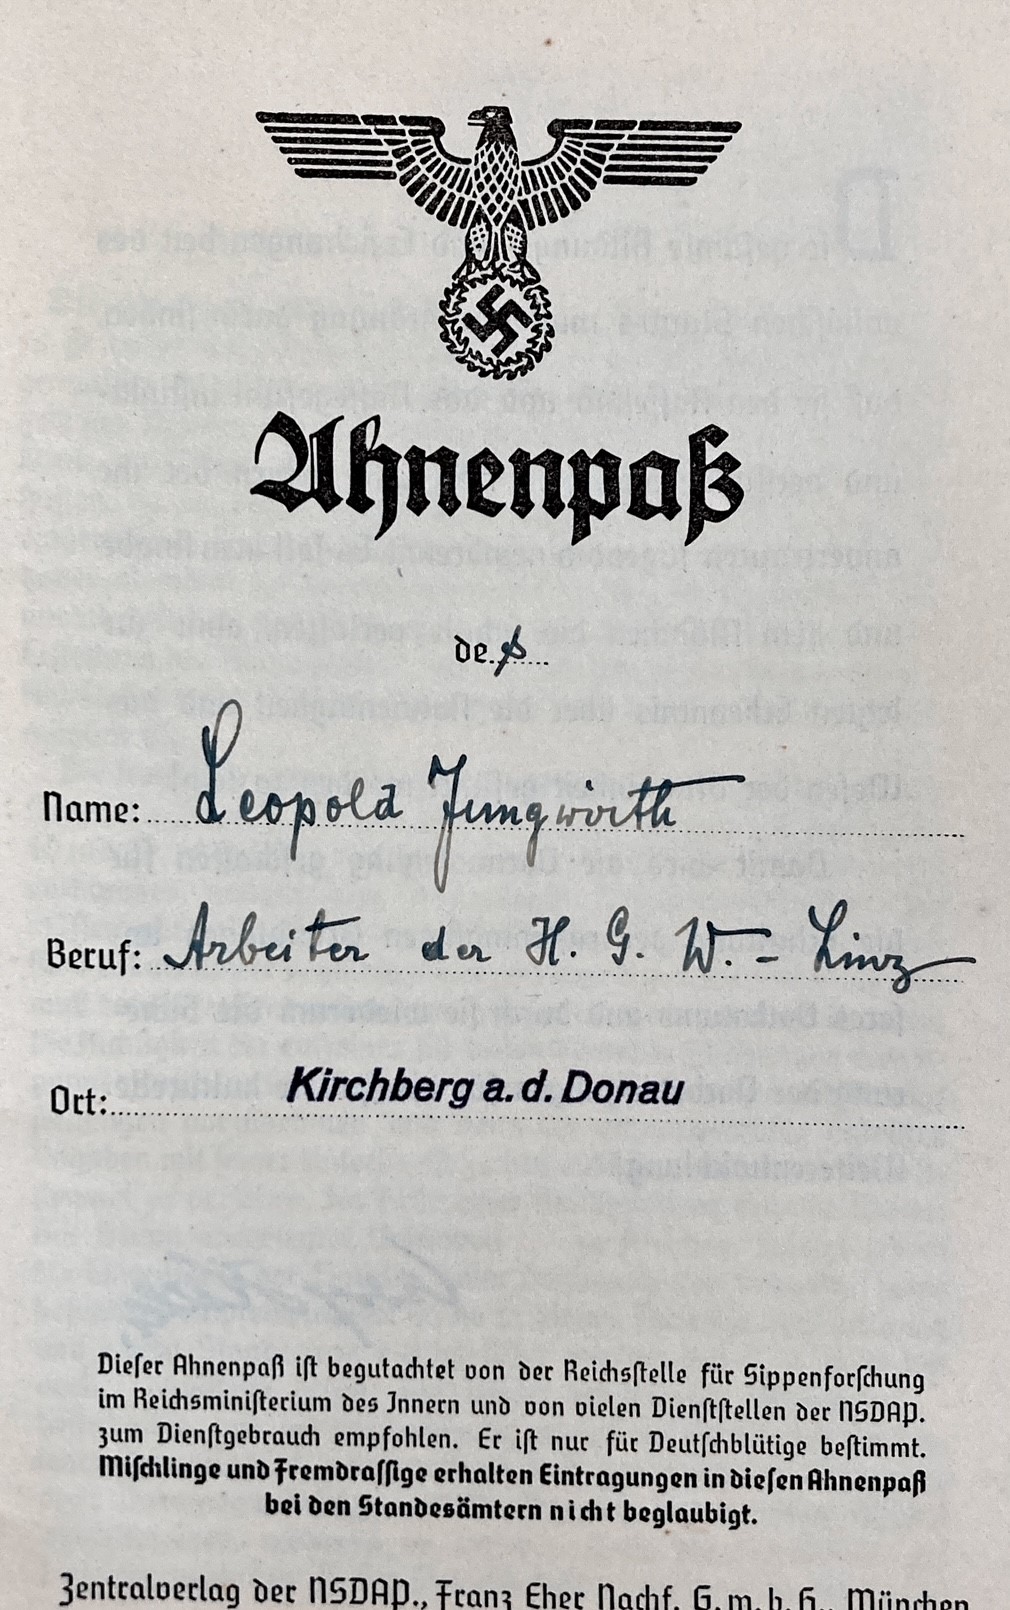 Ahnenpaß
des
Name: Leopold Jungwirth
Beruf: Arbeiter der H. G. W. - Linz
Ort: Kirchberg a. d. Donau
Dieser Ahnenpaß ist begutachtet von der Reichsstelle für Sippenforschung
im Reichsministerium des Innern und von vielen Dienststellen der NSDAP.
zum Dienstgebrauch empfohlen. Er ist nur für Deutschblütige bestimmt.
Mischlinge und Fremdrassige erhalten Eintragungen in diesen Ahnenpaß
bei den Standesämtern nicht beglaubigt.
Zentralverlag der NSDAP., Franz Eher Nachf. G. m. b. H., München